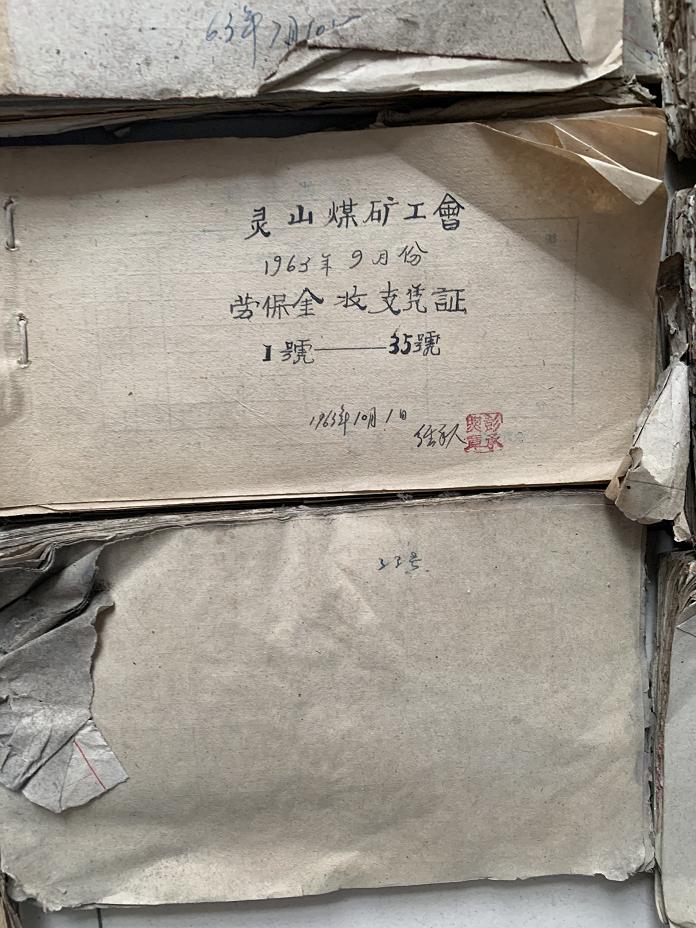 63年7月10
灵山煤矿工會
1963年9月份
劳保金收支凭証
1號——35號
1963年10月1日
经私人
33号